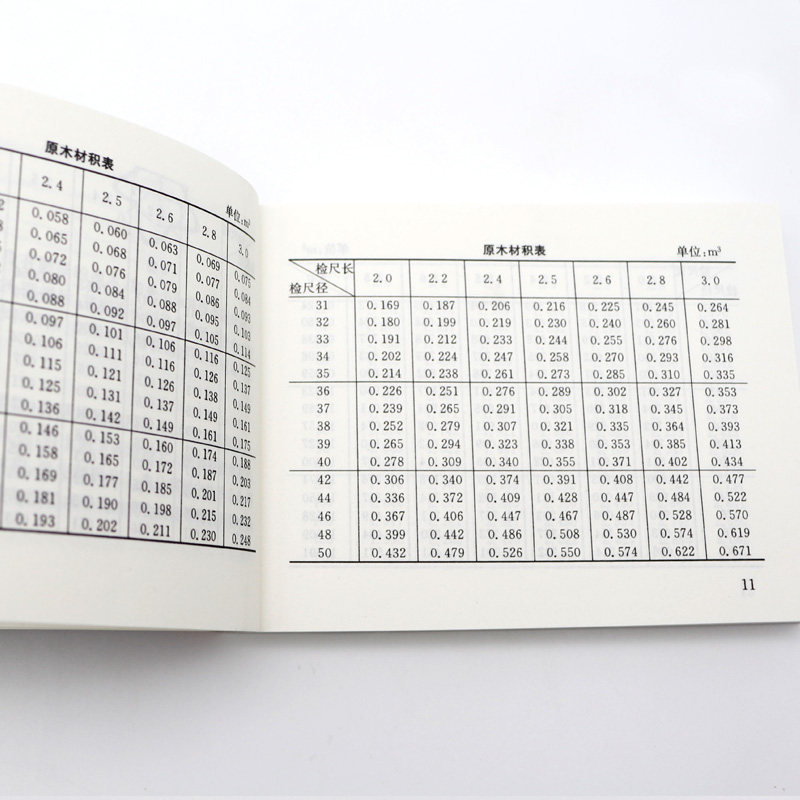 原木材积表
单位:m³
2.4 2.5 2.6 2.8 3.0
0.058 0.060 0.063 0.069 0.075
0.065 0.068 0.071 0.077 0.084
0.072 0.076 0.079 0.086 0.093
0.080 0.084 0.088 0.095 0.103
0.088 0.092 0.097 0.105 0.114
0.097 0.101 0.106 0.116 0.125
0.106 0.111 0.116 0.126 0.137
0.115 0.121 0.126 0.138 0.149
0.125 0.131 0.137 0.149 0.161
0.136 0.142 0.149 0.161 0.175
0.146 0.153 0.160 0.174 0.188
0.158 0.165 0.172 0.187 0.203
0.169 0.177 0.185 0.201 0.217
0.181 0.190 0.198 0.215 0.232
0.193 0.202 0.211 0.230 0.248
原木材积表 单位:m³
检尺长 2.0 2.2 2.4 2.5 2.6 2.8 3.0
检尺径
31 0.169 0.187 0.206 0.216 0.225 0.245 0.264
32 0.180 0.199 0.219 0.230 0.240 0.260 0.281
33 0.191 0.212 0.233 0.244 0.255 0.276 0.298
34 0.202 0.224 0.247 0.258 0.270 0.293 0.316
35 0.214 0.238 0.261 0.273 0.285 0.310 0.335
36 0.226 0.251 0.276 0.289 0.302 0.327 0.353
37 0.239 0.265 0.291 0.305 0.318 0.345 0.373
38 0.252 0.279 0.307 0.321 0.335 0.364 0.393
39 0.265 0.294 0.323 0.338 0.353 0.385 0.413
40 0.278 0.309 0.340 0.355 0.371 0.402 0.434
42 0.306 0.340 0.374 0.391 0.408 0.442 0.477
44 0.336 0.372 0.409 0.428 0.447 0.484 0.522
46 0.367 0.406 0.447 0.467 0.487 0.528 0.570
48 0.399 0.442 0.486 0.508 0.530 0.574 0.619
50 0.432 0.479 0.526 0.550 0.574 0.622 0.671
11